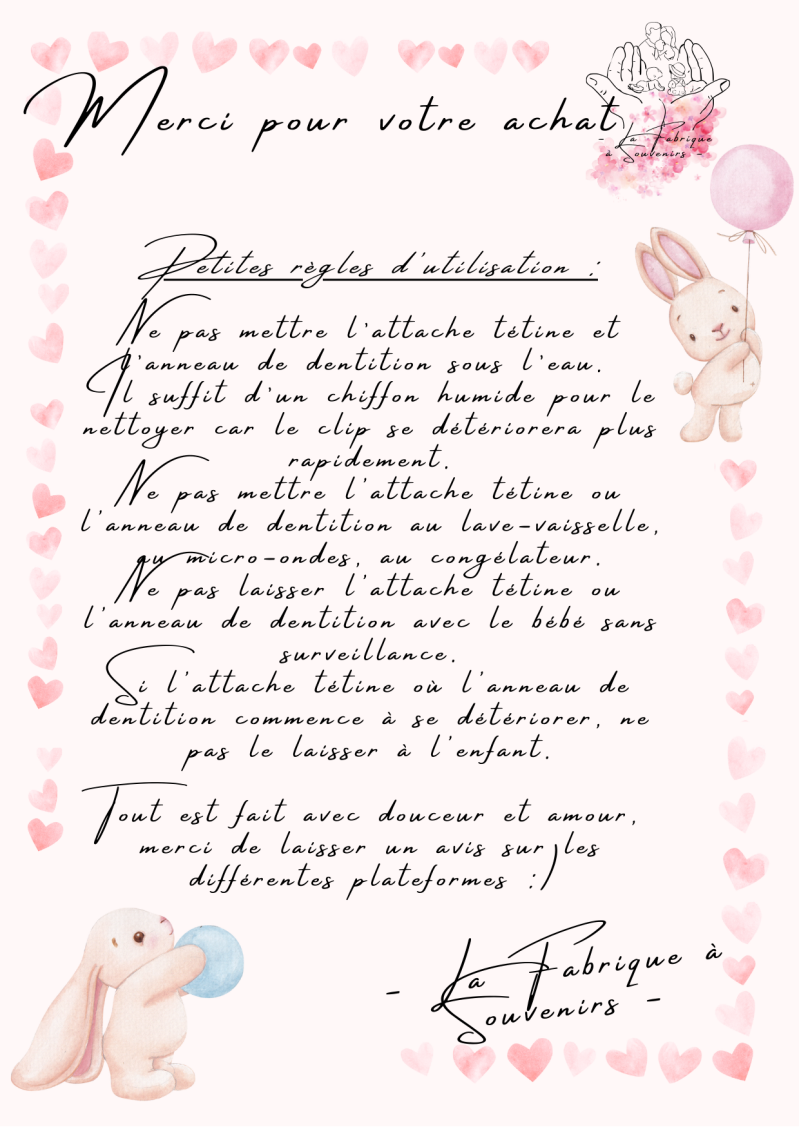 Merci pour votre achat
- La Fabrique
à Souvenirs -
Petites règles d'utilisation :
Ne pas mettre l'attache tétine et
l'anneau de dentition sous l'eau.
Il suffit d'un chiffon humide pour le
nettoyer car le clip se détériorera plus
rapidement.
Ne pas mettre l'attache tétine ou
l'anneau de dentition au lave-vaisselle,
au micro-ondes, au congélateur.
Ne pas laisser l'attache tétine ou
l'anneau de dentition avec le bébé sans
surveillance.
Si l'attache tétine où l'anneau de
dentition commence à se détériorer, ne
pas le laisser à l'enfant.
Tout est fait avec douceur et amour,
merci de laisser un avis sur les
différentes plateformes :)
- La Fabrique à
Souvenirs -